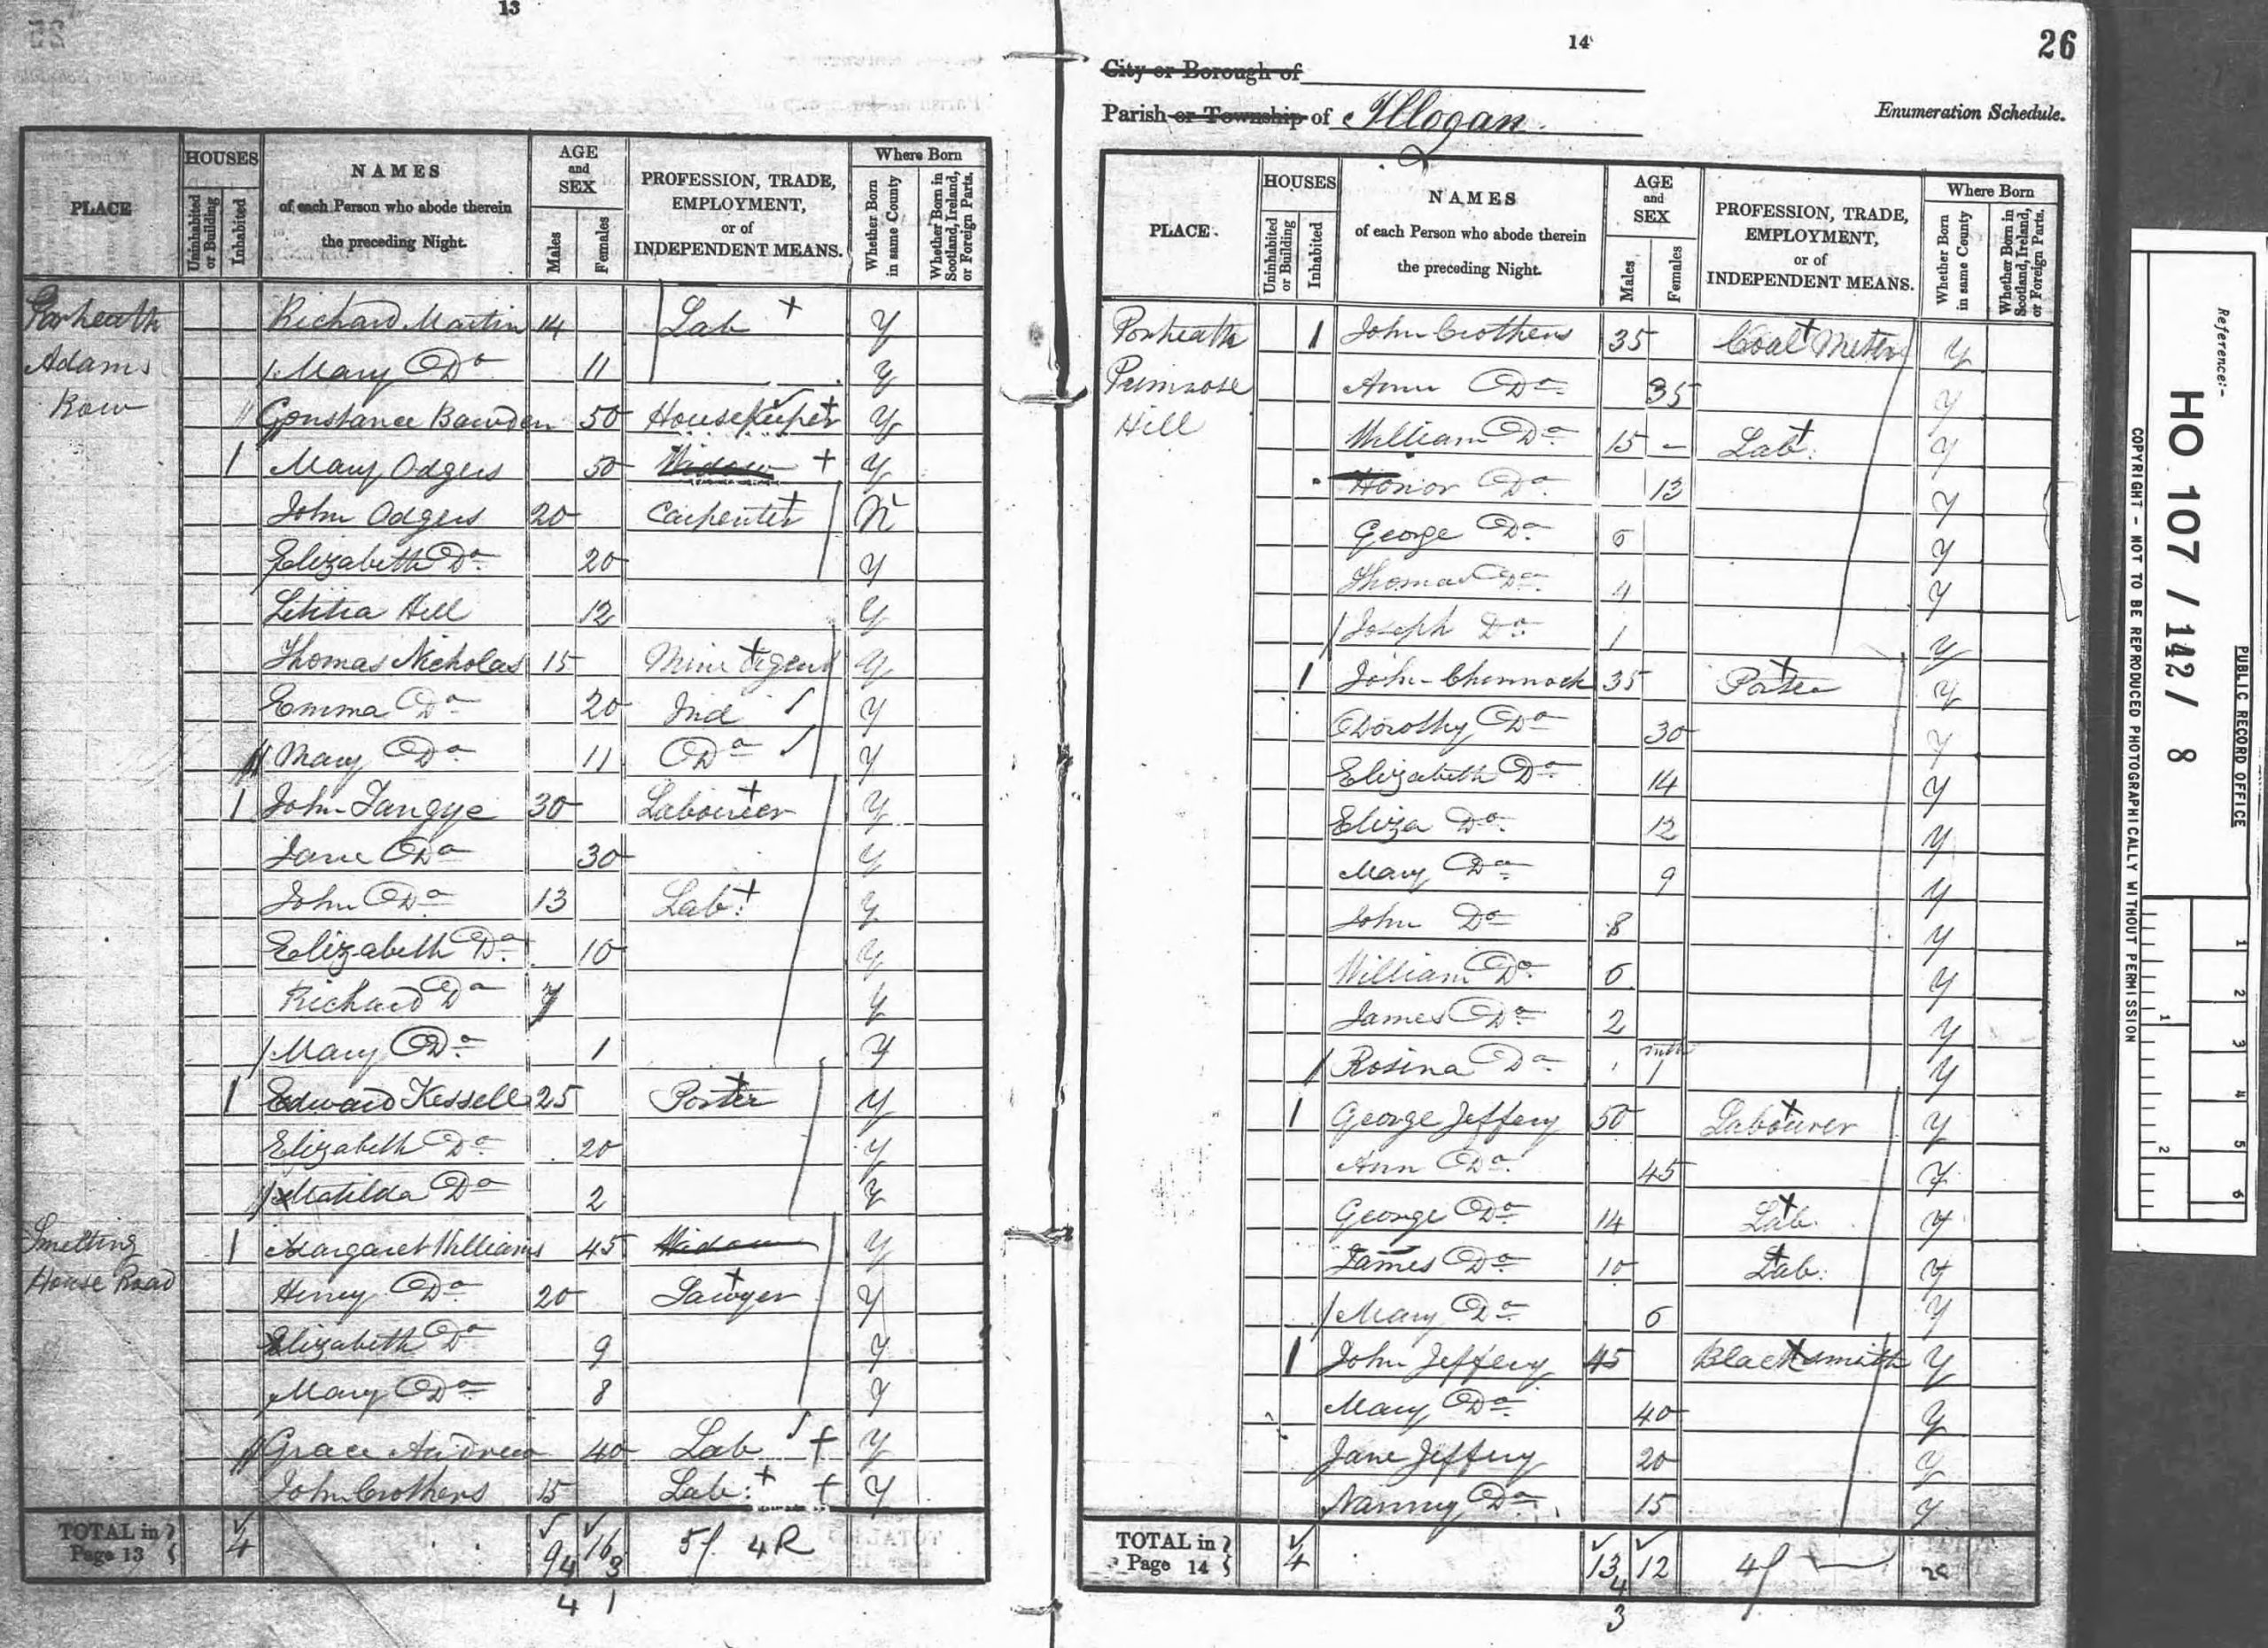 13
PLACE
HOUSES
Uninhabited or Building
Inhabited
NAMES
of each Person who abode therein
the preceding Night.
AGE
and
SEX
Males
Females
PROFESSION, TRADE,
EMPLOYMENT,
or of
INDEPENDENT MEANS.
Where Born
Whether Born in same County
Whether Born in Scotland, Ireland, or Foreign Parts.
Porheath Richard Martin 14 Lab Y
Adams Mary Do 11 Y
Row Constance Bawden 50 Housekeeper Y
1 Mary Odgers 50 Widow Y
John Odgers 20 Carpenter N
Elizabeth Do 20 Y
Letitia Hill 12 Y
Thomas Nicholas 15 Mine Agent Y
Emma Do 20 Ind Y
Mary Do 11 Do Y
1 John Tangye 30 Labourer Y
Jane Do 30 Y
John Do 13 Lab: Y
Elizabeth Do 10 Y
Richard Do 7 Y
Mary Do 1 Y
1 Edward Kessell 25 Porter Y
Elizabeth Do 20 Y
Matilda Do 2 Y
Smelting 1 Margaret Williams 45 Widow Y
House Road Henry Do 20 Sawyer Y
Elizabeth Do 9 Y
Mary Do 8 Y
Grace Andrew 40 Lab Y
John Crothers 15 Lab: Y
TOTAL in Page 13 4 9 16 4 3 5f 4R
4 1
14
26
City or Borough of
Parish or Township of Illogan
Enumeration Schedule.
PLACE.
HOUSES
Uninhabited or Building
Inhabited
NAMES
of each Person who abode therein
the preceding Night.
AGE
and
SEX
Males
Females
PROFESSION, TRADE,
EMPLOYMENT,
or of
INDEPENDENT MEANS.
Where Born
Whether Born in same County
Whether Born in Scotland, Ireland, or Foreign Parts.
Porheath 1 John Crothers 35 Coal Meter Y
Primrose Ann Do 35 Y
Hill William Do 15 Lab: Y
Honor Do 13 Y
George Do 6 Y
Thomas Do 4 Y
Joseph Do 1 Y
1 John Chinnock 35 Porter Y
Dorothy Do 30 Y
Elizabeth Do 14 Y
Eliza Do 12 Y
Mary Do 9 Y
John Do 8 Y
William Do 6 Y
James Do 2 Y
Rosina Do mth 1 Y
1 George Jeffery 50 Labourer Y
Ann Do 45 Y
George Do 14 Lab. Y
James Do 10 Lab: Y
Mary Do 6 Y
1 John Jeffery 45 Blacksmith Y
Mary Do 40 Y
Jane Jeffery 20 Y
Nanny Do 15 Y
TOTAL in Page 14 4 13 12 4 4f
3
Reference:-
HO 107 / 142 / 8
PUBLIC RECORD OFFICE
COPYRIGHT - NOT TO BE REPRODUCED PHOTOGRAPHICALLY WITHOUT PERMISSION
1 2 3 4 5 6
1 2